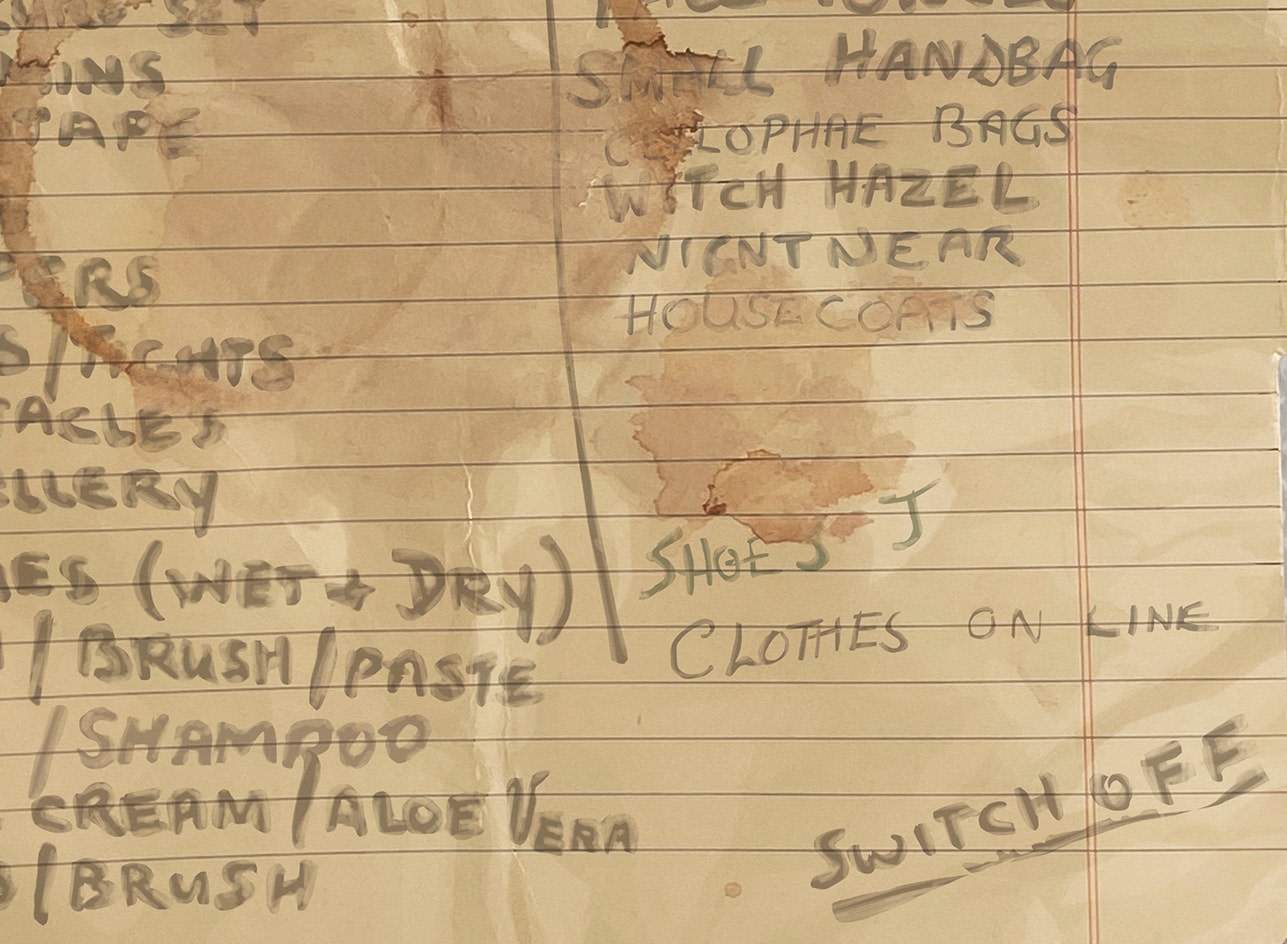 SET
TAPE
/TIGHTS
(WET + DRY)
/ BRUSH / PASTE
/ SHAMPOO
CREAM / ALOE VERA
/ BRUSH
SMALL HANDBAG
BAGS
WITCH HAZEL
NIGNTNEAR
HOUSECOATS
SHOES J
CLOTHES ON LINE
SWITCH OFF